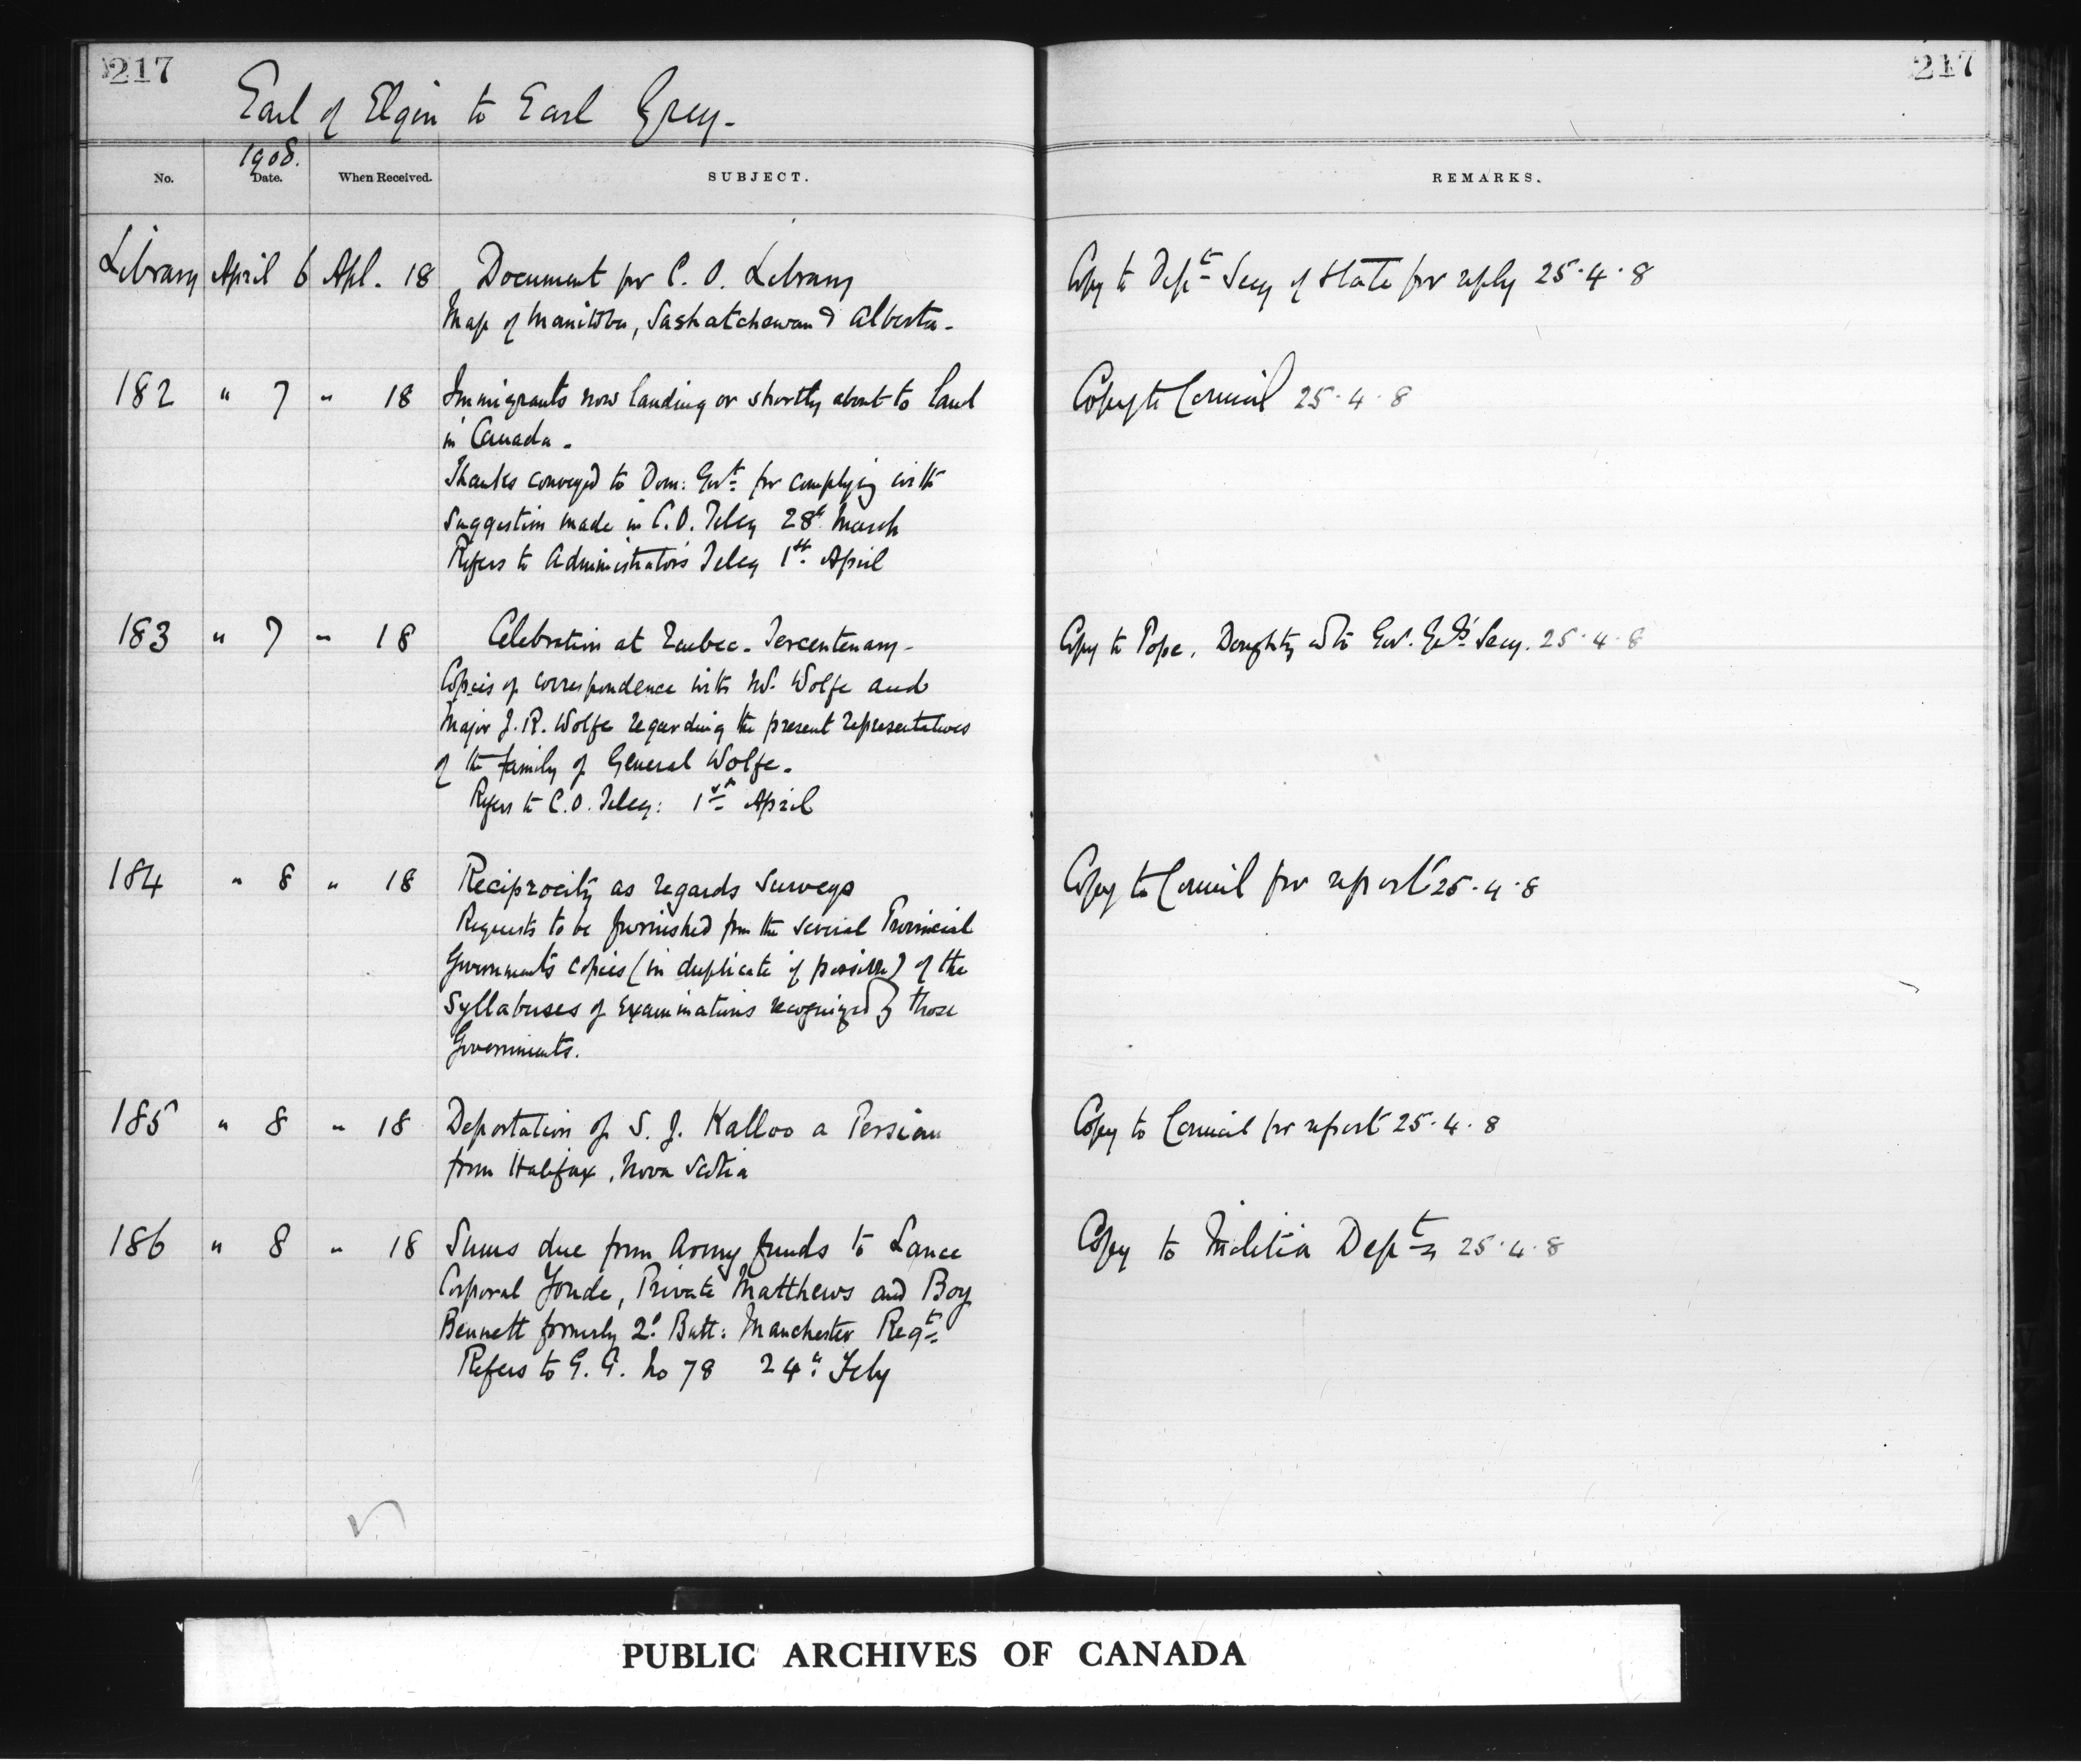 217
217
Earl of Elgin to Earl Grey -
1908.
No. Date. When Received. SUBJECT. REMARKS.
Library April 6 Apl. 18 Document for C. O. Library Copy to Dept Secy of State for reply 25.4.8
Map of Manitoba, Saskatchewan & Alberta -
182 " 7 " 18 Immigrants now landing or shortly about to land Copy to Council 25.4.8
in Canada -
Thanks conveyed to Dom: Govt for complying with
suggestion made in C.O. Teleg 28th March
Refers to Administrator's Teleg 1st April
183 " 7 " 18 Celebration at Quebec - Tercentenary - Copy to Pope, Doughty & to Gov. Genl's Secy. 25.4.8
Copies of correspondence with W. Wolfe and
Major J. R. Wolfe regarding the present representatives
of the family of General Wolfe -
Refers to C.O. Teleg: 1st April
184 " 8 " 18 Reciprocity as regards surveys Copy to Council for report 25.4.8
Requests to be furnished from the several Provincial
Governments copies (in duplicate if possible) of the
Syllabuses of Examinations recognized by those
Governments.
185 " 8 " 18 Deportation of S. J. Kalloo a Persian Copy to Council for report 25.4.8
from Halifax, Nova Scotia
186 " 8 " 18 Sums due from Army funds to Lance Copy to Militia Dept 25.4.8
Corporal Yonde, Private Matthews and Boy
Bennett formerly 2d Batt: Manchester Regt
Refers to G. G. No 78 24th Feby
PUBLIC ARCHIVES OF CANADA